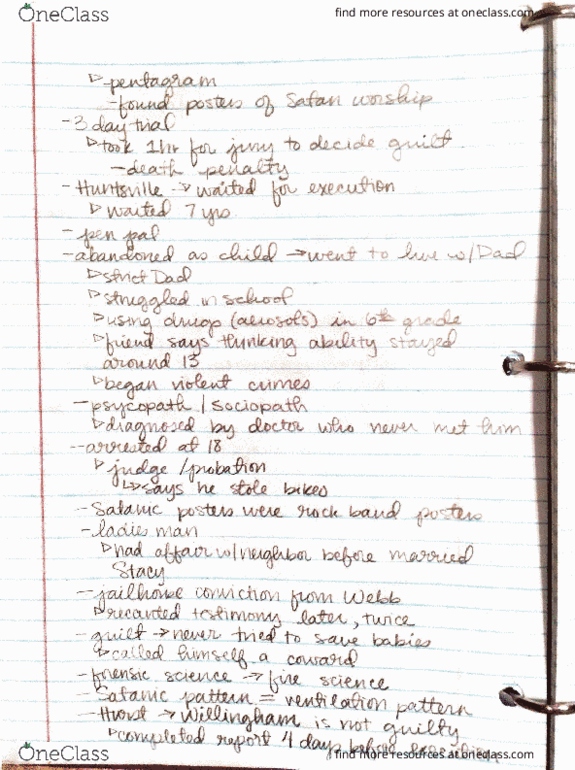 OneClass
find more resources at oneclass.com
▷ pentagram
- found posters of Satan worship
- 3 day trial
▷ took 1hr for jury to decide guilt
- death penalty
- Huntsville → waited for execution
▷ waited 7 yrs
- pen pal
- abandoned as child → went to live w/Dad
▷ strict Dad
▷ struggled in school
▷ using drugs (aerosols) in 6th grade
▷ friend says thinking ability stayed
around 13
▷ began violent crimes
- psycopath / sociopath
▷ diagnosed by doctor who never met him
- arrested at 18
▷ judge /probation
↳ says he stole bikes
- Satanic posters were rock band posters
- ladies man
▷ had affair w/neighbor before married
Stacy
- jailhouse conviction from Webb
▷ recanted testimony later, twice
- guilt → never tried to save babies
▷ called himself a coward
- forensic science → fire science
- Satanic pattern = ventilation pattern
- Hurst → Willingham is not guilty
▷ completed report 4 days before
OneClass
find more resources at oneclass.com